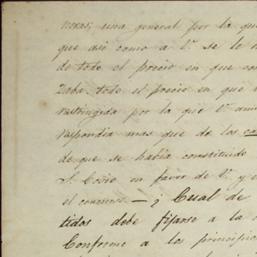 una general por la que
que asi como a V. se le
de todo el precio en que con
todo el precio en que
restringida por la que V.
respondia mas que de los
de que se habia constituido
S. Cosio en favor de V. y e
el concurso — ¿ Cual de
tidos debe fijarse a la
Conforme a los principios